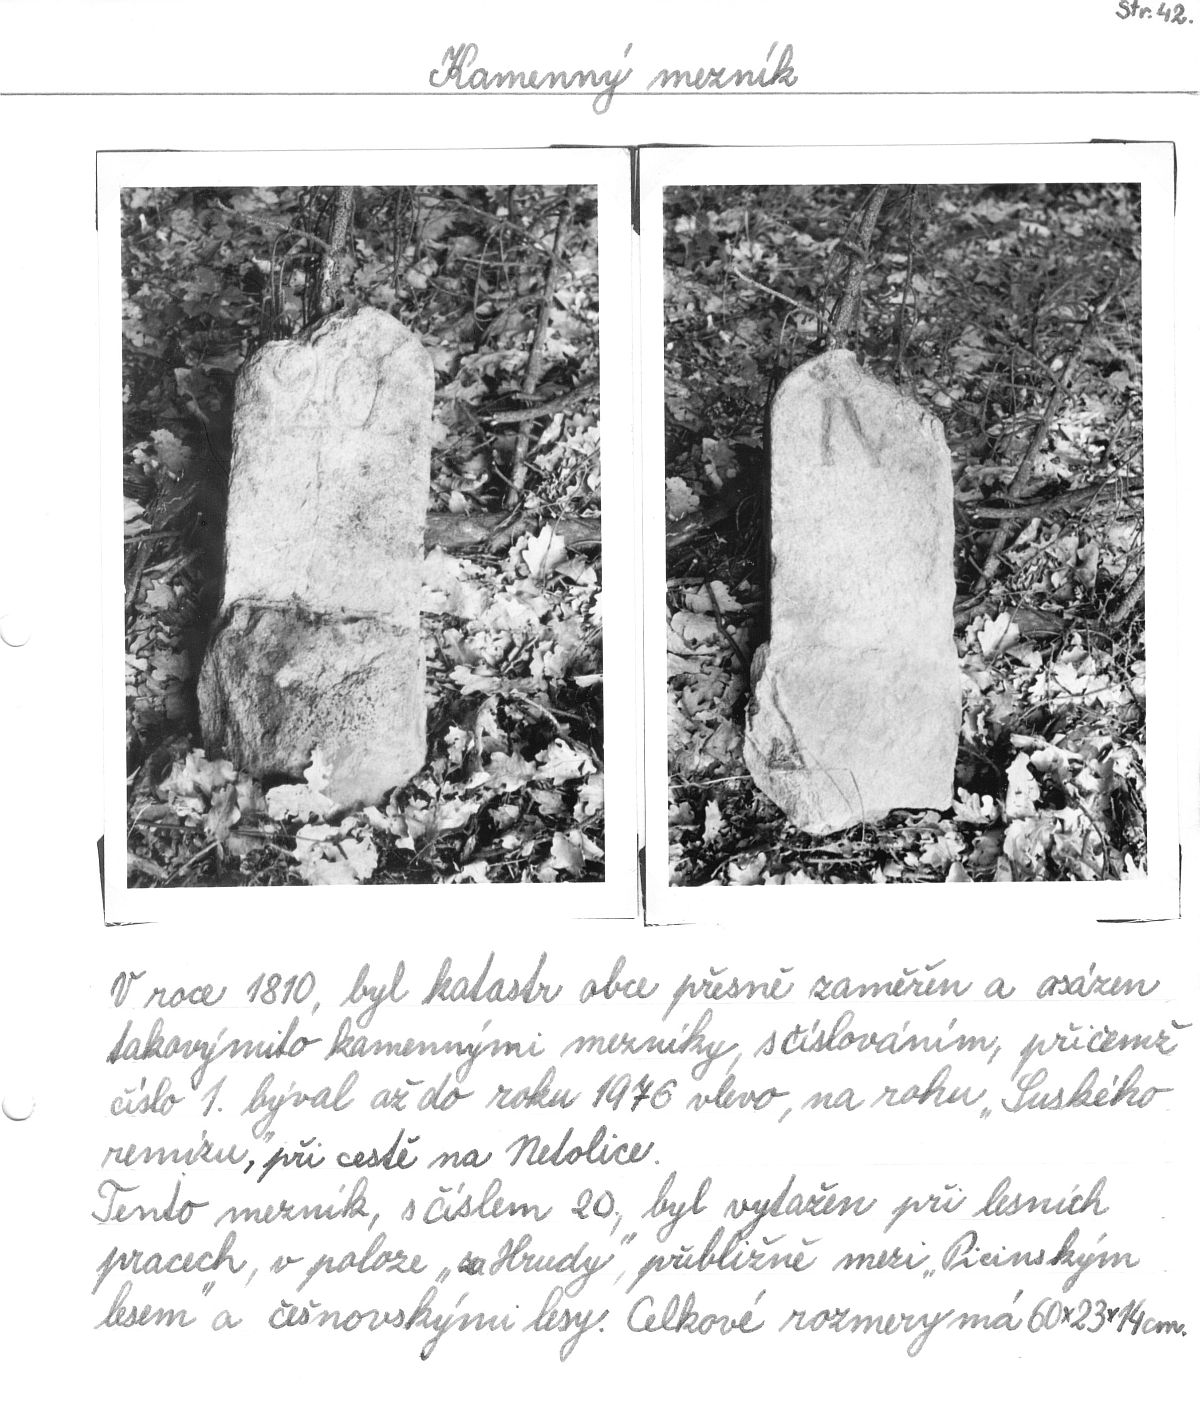 Str. 42.
Kamenný mezník
20
N
V roce 1810, byl katastr obce přesně zaměřěn a osázen
takovýmito kamennými mezníky, s číslováním, přičemž
číslo 1. býval až do roku 1976 vlevo, na rohu „Suského
remízu,“ při cestě na Netolice.
Tento mezník, s číslem 20., byl vytažen při lesních
pracech, v poloze „za Hrudy“, přibližně mezi „Picinským
lesem“ a češnovskými lesy. Celkové rozmery má 60×23×14cm.